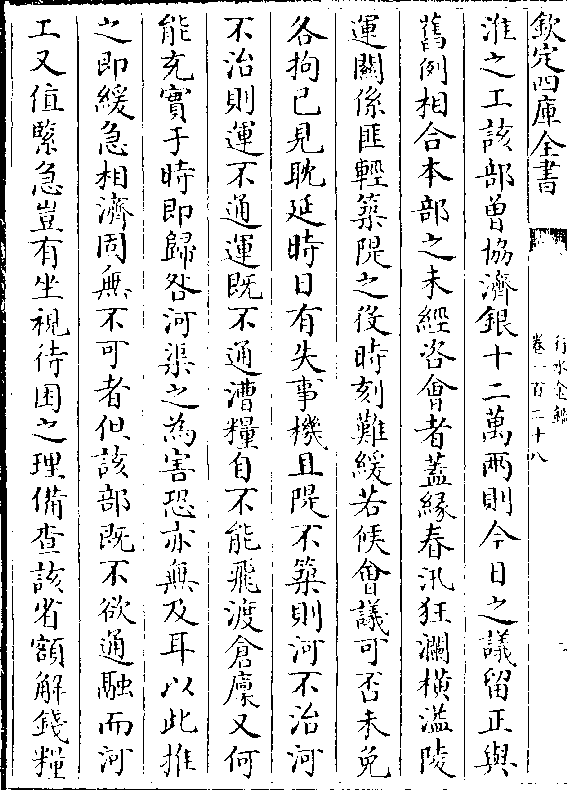 欽定四庫全書
行水金鑑
卷一百二十八
淮之工該部曽協濟銀十二萬兩則今日之議留正與
舊例相合本部之未經咨會者蓋縁春汛狂瀾橫溢陵
運關係匪輕築隄之役時刻難緩若候會議可否未免
各拘已見耽延時日有失事機且隄不築則河不治河
不治則運不通運既不通漕糧自不能飛渡倉廪又何
能充實于時即歸咎河渠之為害恐亦無及耳以此推
之即緩急相濟固無不可者但該部既不欲通融而河
工又值緊急豈有坐視待困之理備查該省額解錢糧